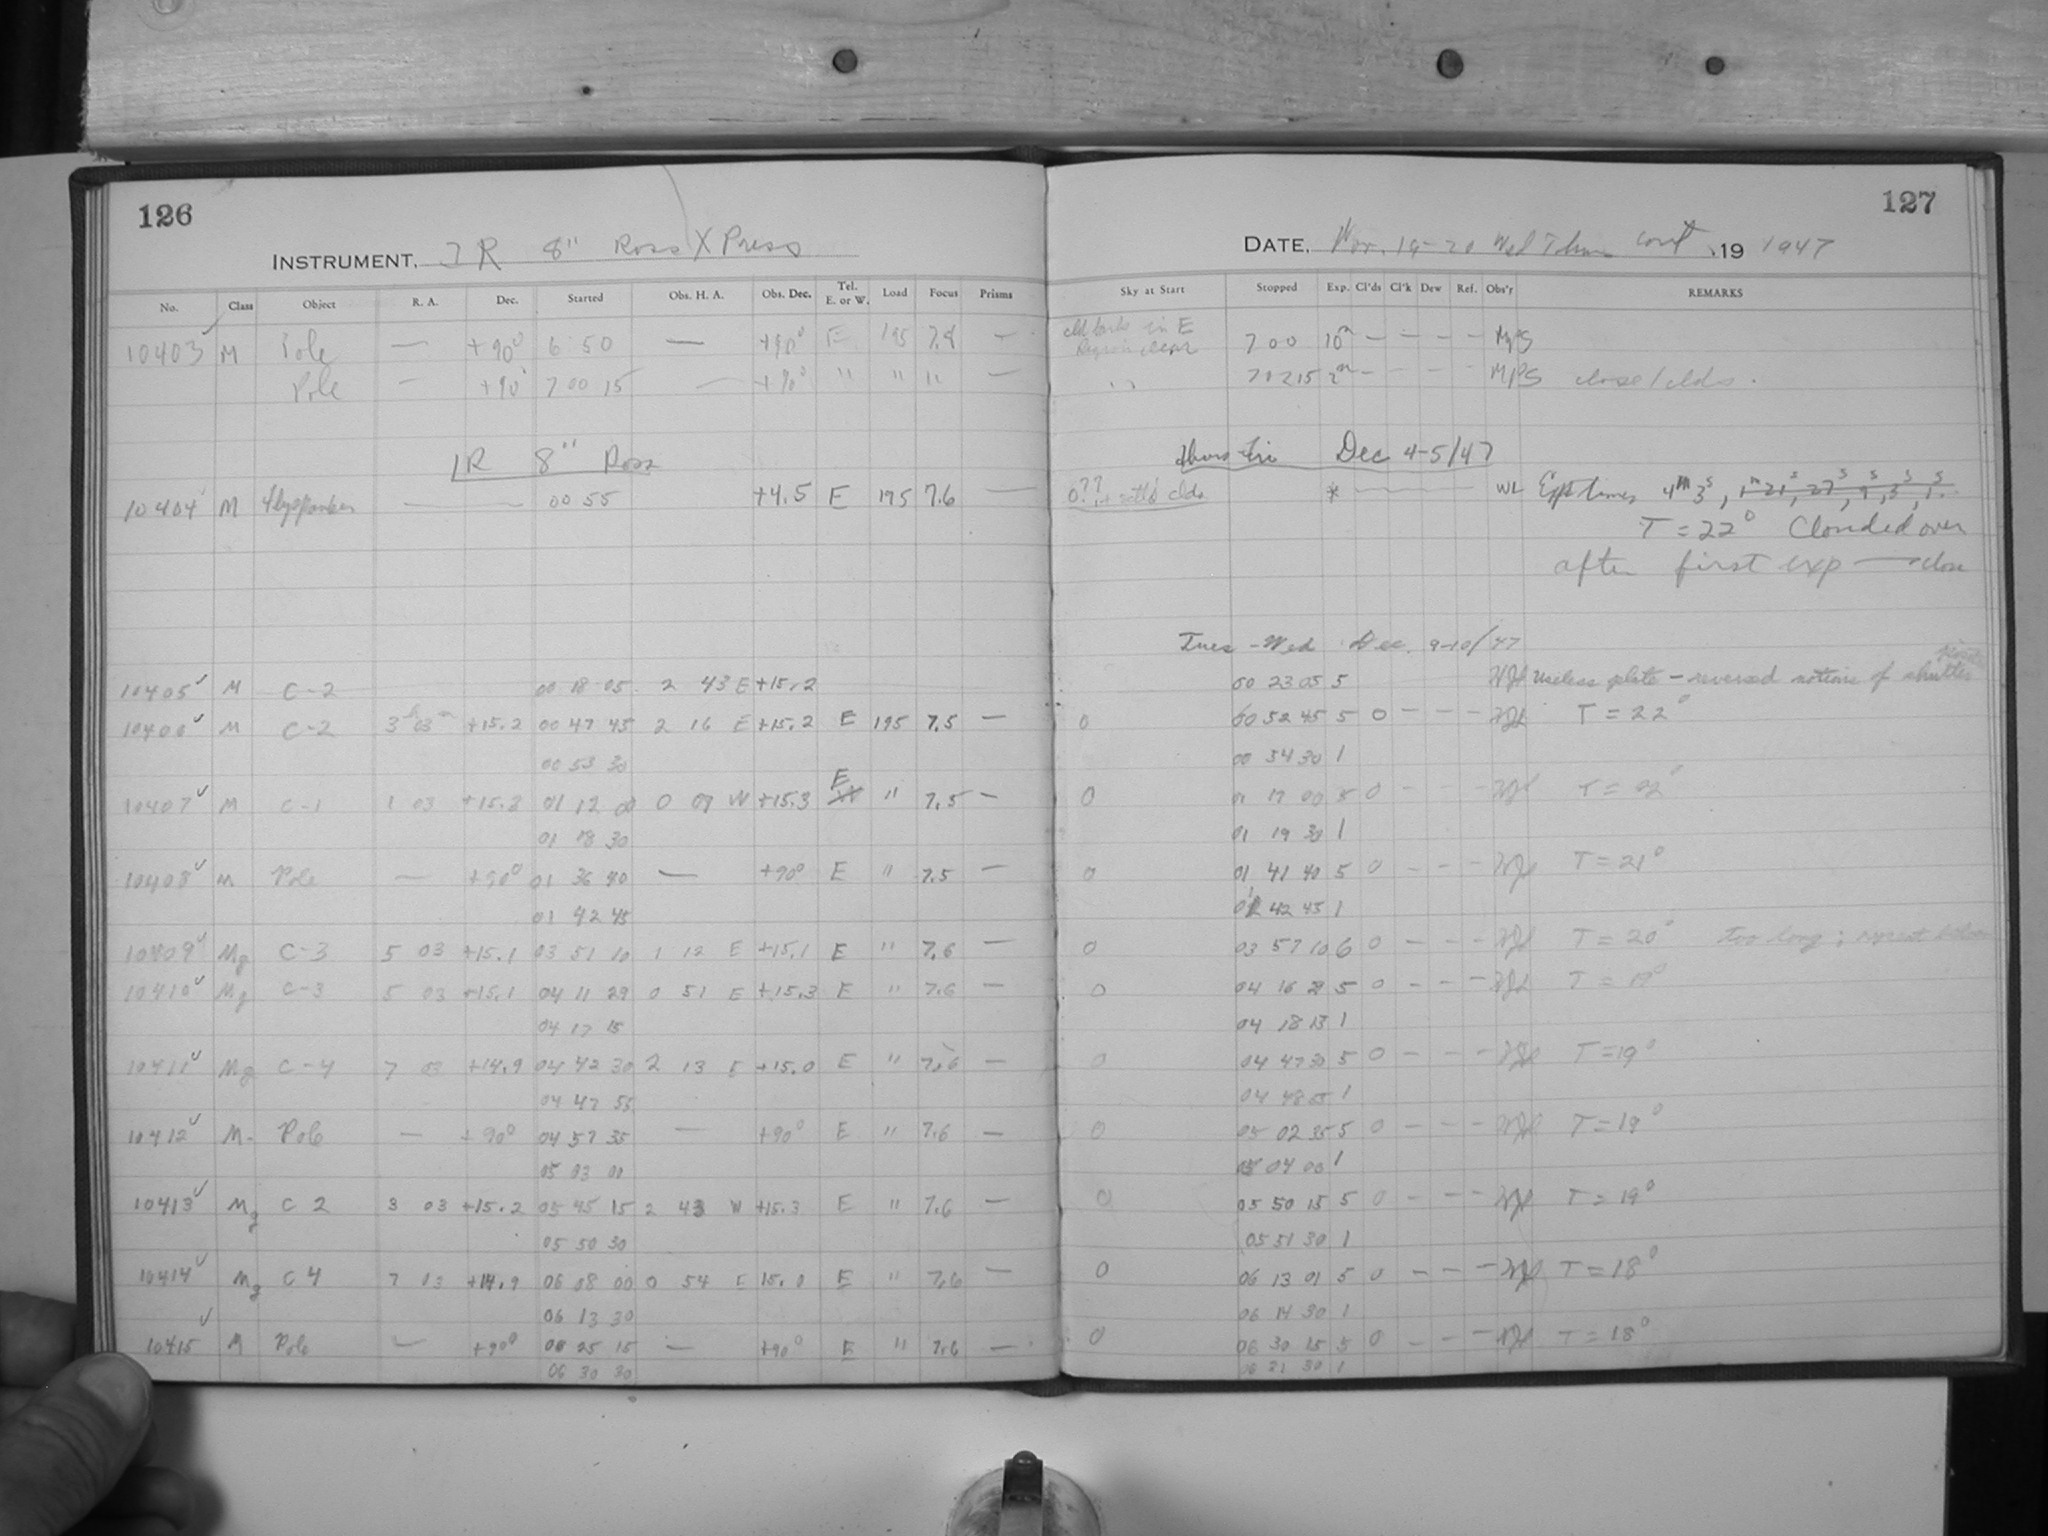 126
127
INSTRUMENT, IR 8" Ross XPress
DATE, Nov. 19-20 Wed Thurs cont , 19 1947
No. Class Object R. A. Dec. Started Obs. H. A. Obs. Dec. Tel. E. or W. Load Focus Prisms Sky at Start Stopped Exp. Cl'ds Cl'k Dew Ref. Obs'r REMARKS
10403 ✓ M Pole — +90° 6 50 — +90° E 195 7.8 — cld banks in E 7 00 10m — — — — MPS
Region clear
Pole — +90° 7 00 15 — +90° " " " — " 7 02 15 2m — — — — MPS close / clds.
IR 8" Ross
Thurs-Fri Dec 4-5/47
10404 M — — 00 55 +4.5 E 195 7.6 — 0?? clds * — WL Exp times 4m 3s, 1m 21s, 27s, 9s, 3s, 1s.
T = 22° Clouded over
after first exp — close
Tues - Wed Dec. 9-10/47
10405 ✓ M C-2 00 18 05 2 43 E +15.2 00 23 05 5 useless plate - reversed motions of shutter
10406 ✓ M C-2 3h 03m +15.2 00 47 45 2 16 E +15.2 E 195 7.5 — 0 00 52 45 5 0 - - - T = 22°
00 53 30 00 54 30 1
10407 ✓ M C-1 1 03 +15.2 01 12 00 0 09 W +15.3 E " 7.5 — 0 01 17 00 5 0 - - - T = 22°
01 18 30 01 19 30 1
10408 ✓ M Pole — +90° 01 36 40 — +90° E " 7.5 — 0 01 41 40 5 0 - - - T = 21°
01 42 45 42 45 1
10409 ✓ Mg C-3 5 03 +15.1 03 51 10 1 12 E +15.1 E " 7.6 — 0 03 57 10 6 0 - - - T = 20° too long; repeat below
10410 ✓ Mg C-3 5 03 +15.1 04 11 29 0 51 E +15.3 E " 7.6 — 0 04 16 29 5 0 - - - T = 19°
04 17 15 04 18 15 1
10411 ✓ Mg C-4 7 03 +14.9 04 42 30 2 13 E +15.0 E " 7.6 — 0 04 47 30 5 0 - - - T = 19°
04 47 55 04 48 55 1
10412 ✓ M. Pole — +90° 04 57 35 — +90° E " 7.6 — 0 05 02 35 5 0 - - - T = 19°
05 03 00 05 04 00 1
10413 ✓ Mg C 2 3 03 +15.2 05 45 15 2 43 W +15.3 E " 7.6 — 0 05 50 15 5 0 - - - T = 19°
05 50 30 05 51 30 1
10414 ✓ Mg C 4 7 03 +14.9 06 08 00 0 54 E 15.0 E " 7.6 — 0 06 13 01 5 0 - - - T = 18°
06 13 30 06 14 30 1
10415 ✓ M Pole — +90° 06 25 15 — +90° E " 7.6 — 0 06 30 15 5 0 - - - T = 18°
06 30 30 06 31 30 1